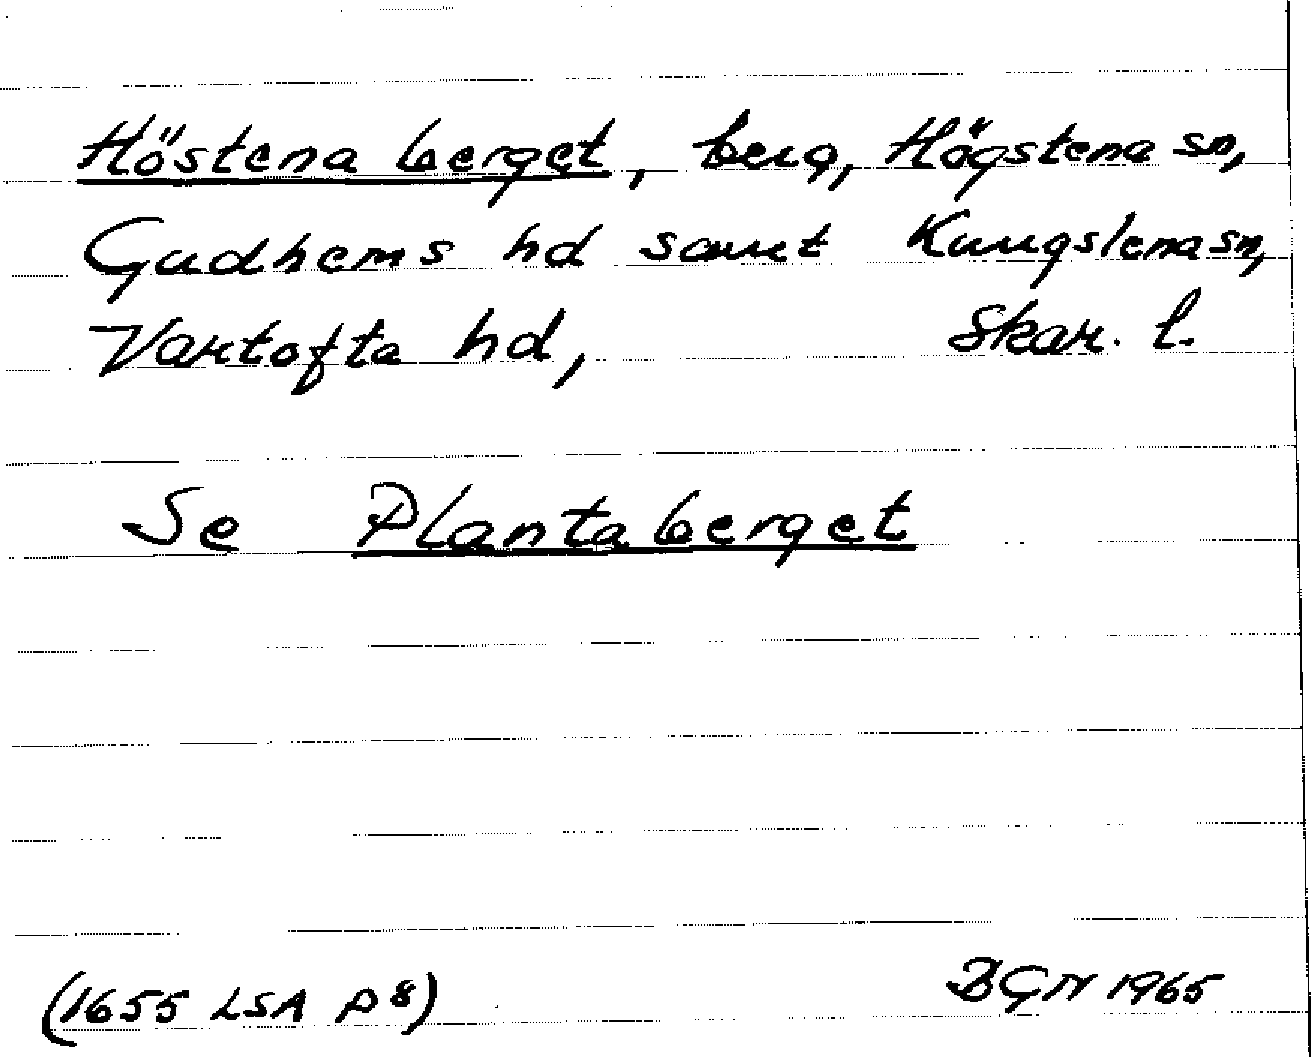 Höstena berget, berg, Högstena sn,
Gudhems hd samt Kungslena sn,
Vartofta hd, Skar. l.
Se Plantaberget
(1655 LSA P8)
BGN 1965